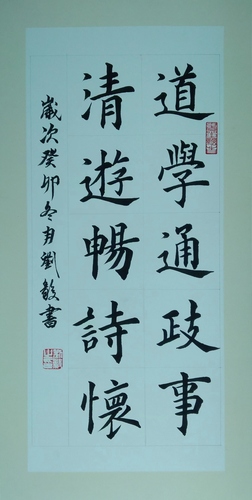 道學通歧事
清遊暢詩懷
歲次癸卯冬月劉敏書